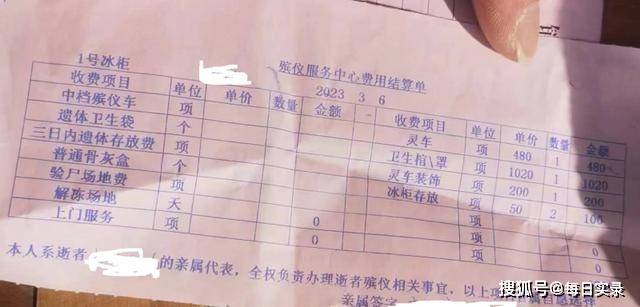 1号冰柜
殡仪服务中心费用结算单
2023 3 6
收费项目 单位 单价 数量 金额 收费项目 单位 单价 数量 金额
中档殡仪车 项 灵车 项 480 1 480
遗体卫生袋 个 卫生棺\罩 项 1020 1 1020
三日内遗体存放费 项 灵车装饰 项 200 1 200
普通骨灰盒 个 冰柜存放 项 50 2 100
验尸场地费 项
解冻场地 天 0
上门服务 项 0 0
0 0
本人系逝者 的亲属代表，全权负责办理逝者殡仪相关事宜，以上项
亲属签字
搜狐号@每日实录